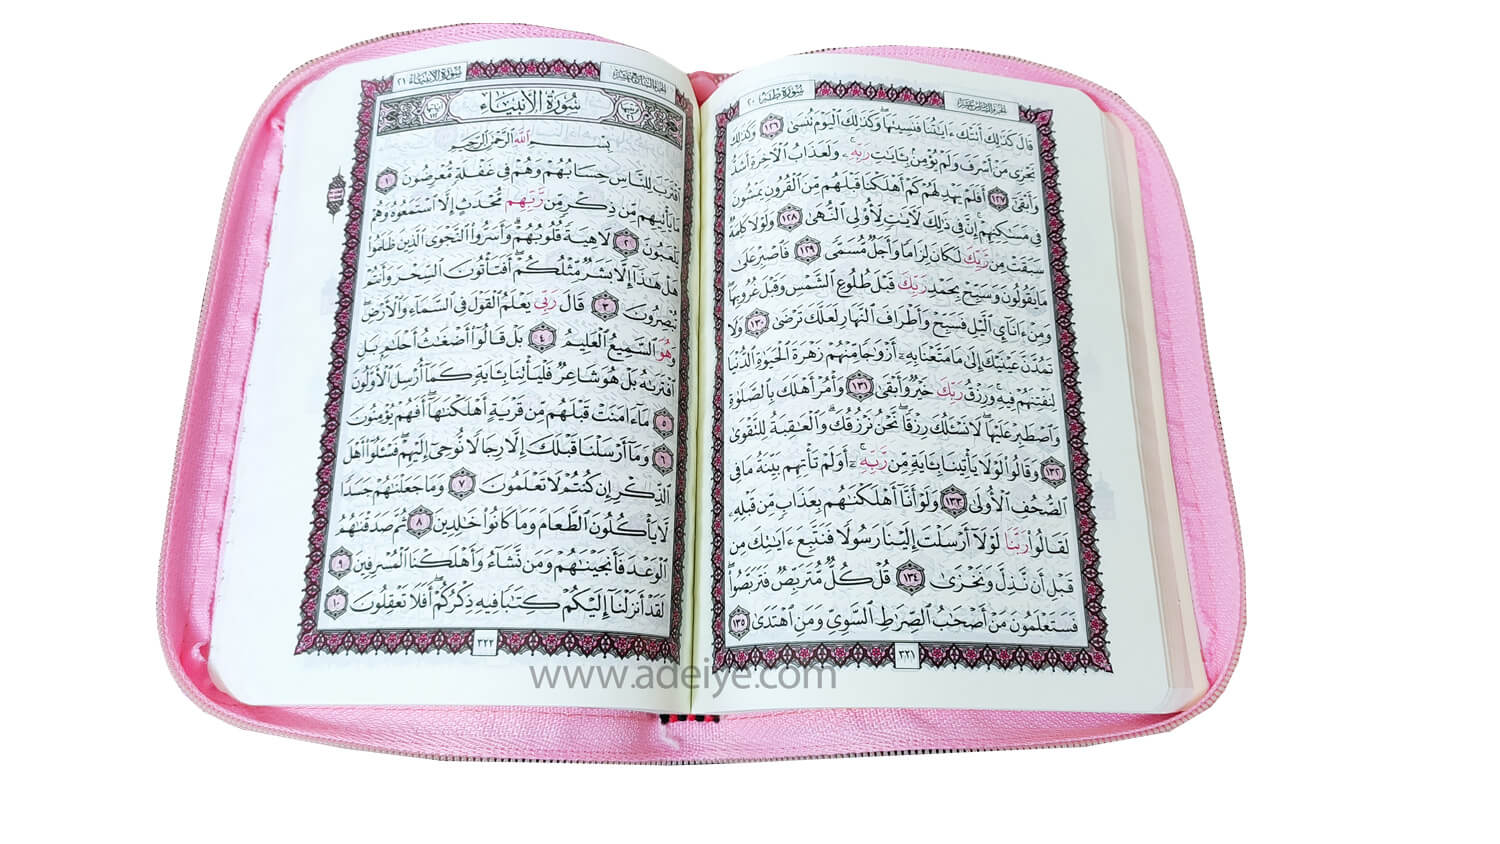 الجزء السادس عشر
سورة طه ٢٠
قَالَ كَذَٰلِكَ أَتَتْكَ ءَايَٰتُنَا فَنَسِيتَهَا ۖ وَكَذَٰلِكَ ٱلْيَوْمَ تُنسَىٰ ١٢٦ وَكَذَٰلِكَ
نَجْزِى مَنْ أَسْرَفَ وَلَمْ يُؤْمِنۢ بِـَٔايَٰتِ رَبِّهِۦ ۚ وَلَعَذَابُ ٱلْـَٔاخِرَةِ أَشَدُّ
وَأَبْقَىٰٓ ١٢٧ أَفَلَمْ يَهْدِ لَهُمْ كَمْ أَهْلَكْنَا قَبْلَهُم مِّنَ ٱلْقُرُونِ يَمْشُونَ
فِى مَسَٰكِنِهِمْ ۗ إِنَّ فِى ذَٰلِكَ لَـَٔايَٰتٍ لِّأُو۟لِى ٱلنُّهَىٰ ١٢٨ وَلَوْلَا كَلِمَةٌ
سَبَقَتْ مِن رَّبِّكَ لَكَانَ لِزَامًا وَأَجَلٌ مُّسَمًّى ١٢٩ فَٱصْبِرْ عَلَىٰ
مَا يَقُولُونَ وَسَبِّحْ بِحَمْدِ رَبِّكَ قَبْلَ طُلُوعِ ٱلشَّمْسِ وَقَبْلَ غُرُوبِهَا ۖ
وَمِنْ ءَانَآئِ ٱلَّيْلِ فَسَبِّحْ وَأَطْرَافَ ٱلنَّهَارِ لَعَلَّكَ تَرْضَىٰ ١٣٠ وَلَا
تَمُدَّنَّ عَيْنَيْكَ إِلَىٰ مَا مَتَّعْنَا بِهِۦٓ أَزْوَٰجًا مِّنْهُمْ زَهْرَةَ ٱلْحَيَوٰةِ ٱلدُّنْيَا
لِنَفْتِنَهُمْ فِيهِ ۚ وَرِزْقُ رَبِّكَ خَيْرٌ وَأَبْقَىٰ ١٣١ وَأْمُرْ أَهْلَكَ بِٱلصَّلَوٰةِ
وَٱصْطَبِرْ عَلَيْهَا ۖ لَا نَسْـَٔلُكَ رِزْقًا ۖ نَّحْنُ نَرْزُقُكَ ۗ وَٱلْعَٰقِبَةُ لِلتَّقْوَىٰ
١٣٢ وَقَالُوا۟ لَوْلَا يَأْتِينَا بِـَٔايَةٍ مِّن رَّبِّهِۦٓ ۚ أَوَلَمْ تَأْتِهِم بَيِّنَةُ مَا فِى
ٱلصُّحُفِ ٱلْأُولَىٰ ١٣٣ وَلَوْ أَنَّآ أَهْلَكْنَٰهُم بِعَذَابٍ مِّن قَبْلِهِۦ
لَقَالُوا۟ رَبَّنَا لَوْلَآ أَرْسَلْتَ إِلَيْنَا رَسُولًا فَنَتَّبِعَ ءَايَٰتِكَ مِن
قَبْلِ أَن نَّذِلَّ وَنَخْزَىٰ ١٣٤ قُلْ كُلٌّ مُّتَرَبِّصٌ فَتَرَبَّصُوا۟ ۖ
فَسَتَعْلَمُونَ مَنْ أَصْحَٰبُ ٱلصِّرَٰطِ ٱلسَّوِىِّ وَمَنِ ٱهْتَدَىٰ ١٣٥
٣٢١
سورة الأنبياء ٢١
سُورَةُ الأَنبِيَاءِ
بِسْمِ ٱللَّهِ ٱلرَّحْمَٰنِ ٱلرَّحِيمِ
ٱقْتَرَبَ لِلنَّاسِ حِسَابُهُمْ وَهُمْ فِى غَفْلَةٍ مُّعْرِضُونَ ١
مَا يَأْتِيهِم مِّن ذِكْرٍ مِّن رَّبِّهِم مُّحْدَثٍ إِلَّا ٱسْتَمَعُوهُ وَهُمْ
يَلْعَبُونَ ٢ لَاهِيَةً قُلُوبُهُمْ ۗ وَأَسَرُّوا۟ ٱلنَّجْوَى ٱلَّذِينَ ظَلَمُوا۟
هَلْ هَٰذَآ إِلَّا بَشَرٌ مِّثْلُكُمْ ۖ أَفَتَأْتُونَ ٱلسِّحْرَ وَأَنتُمْ
تُبْصِرُونَ ٣ قَالَ رَبِّى يَعْلَمُ ٱلْقَوْلَ فِى ٱلسَّمَآءِ وَٱلْأَرْضِ ۖ
وَهُوَ ٱلسَّمِيعُ ٱلْعَلِيمُ ٤ بَلْ قَالُوٓا۟ أَضْغَٰثُ أَحْلَٰمٍۭ بَلِ
ٱفْتَرَىٰهُ بَلْ هُوَ شَاعِرٌ فَلْيَأْتِنَا بِـَٔايَةٍ كَمَآ أُرْسِلَ ٱلْأَوَّلُونَ
٥ مَآ ءَامَنَتْ قَبْلَهُم مِّن قَرْيَةٍ أَهْلَكْنَٰهَآ ۖ أَفَهُمْ يُؤْمِنُونَ
٦ وَمَآ أَرْسَلْنَا قَبْلَكَ إِلَّا رِجَالًا نُّوحِىٓ إِلَيْهِمْ ۖ فَسْـَٔلُوٓا۟ أَهْلَ
ٱلذِّكْرِ إِن كُنتُمْ لَا تَعْلَمُونَ ٧ وَمَا جَعَلْنَٰهُمْ جَسَدًا
لَّا يَأْكُلُونَ ٱلطَّعَامَ وَمَا كَانُوا۟ خَٰلِدِينَ ٨ ثُمَّ صَدَقْنَٰهُمُ
ٱلْوَعْدَ فَأَنجَيْنَٰهُمْ وَمَن نَّشَآءُ وَأَهْلَكْنَا ٱلْمُسْرِفِينَ ٩
لَقَدْ أَنزَلْنَآ إِلَيْكُمْ كِتَٰبًا فِيهِ ذِكْرُكُمْ ۖ أَفَلَا تَعْقِلُونَ ١٠
٣٢٢
www.adeiye.com